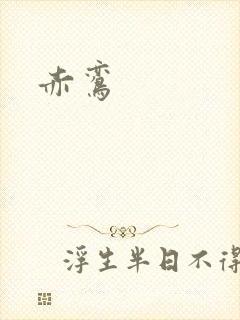 赤鸾
浮生半日不得